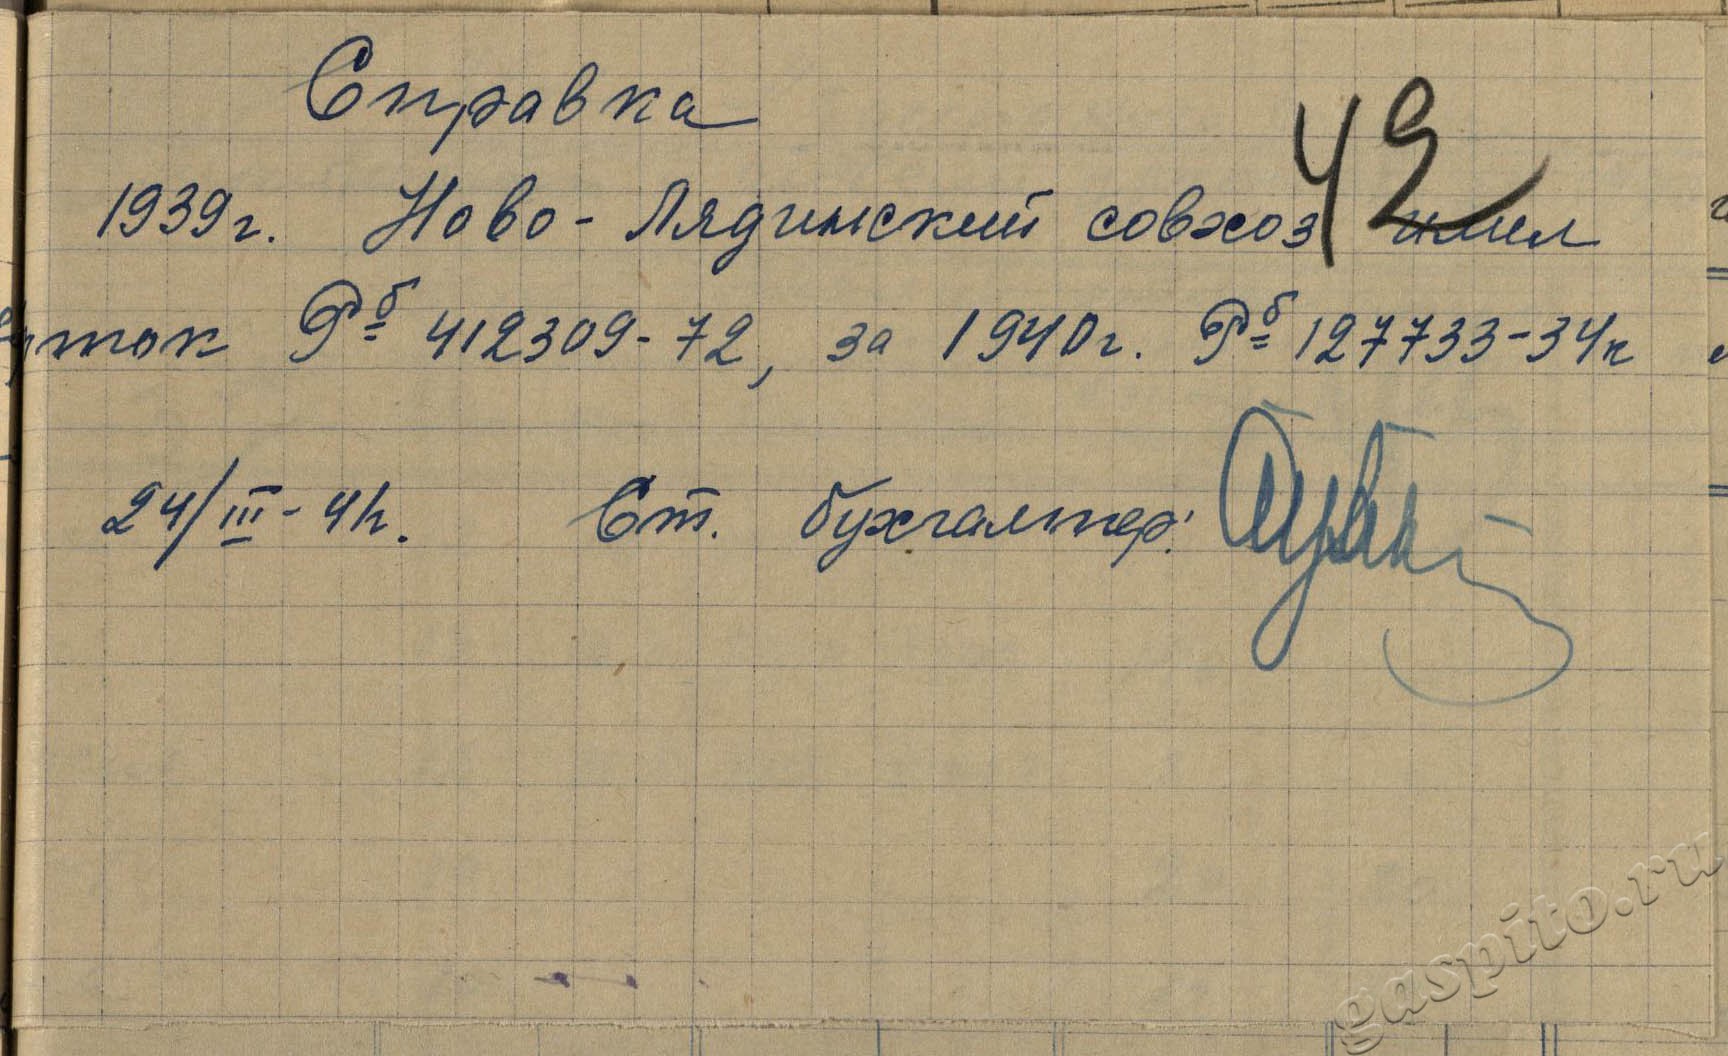 Справка
42
1939г. Ново-Лядинский совхоз имел
уток Рб 412309-72, за 1940г. Рб 127733-34к
24/III-41г. Ст. бухгалтер:
gaspito.ru